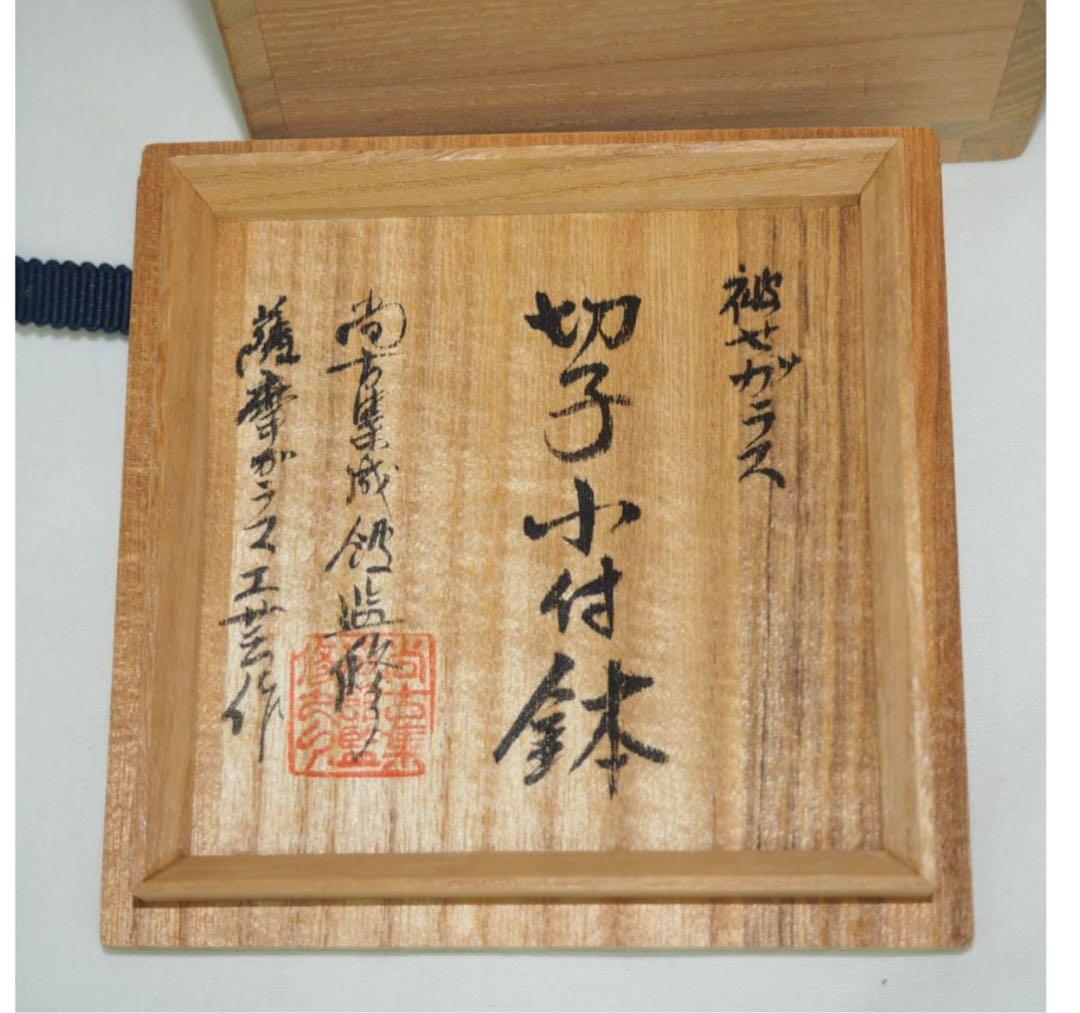 被せガラス
切子小付鉢
尚古集成館監修
薩摩ガラス工芸作
尚古集